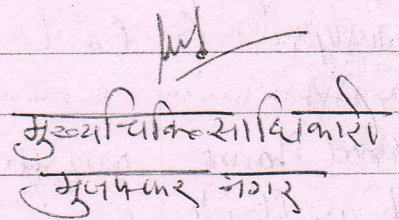 मुख्य चिकित्साधिकारी
मुजफ्फर नगर